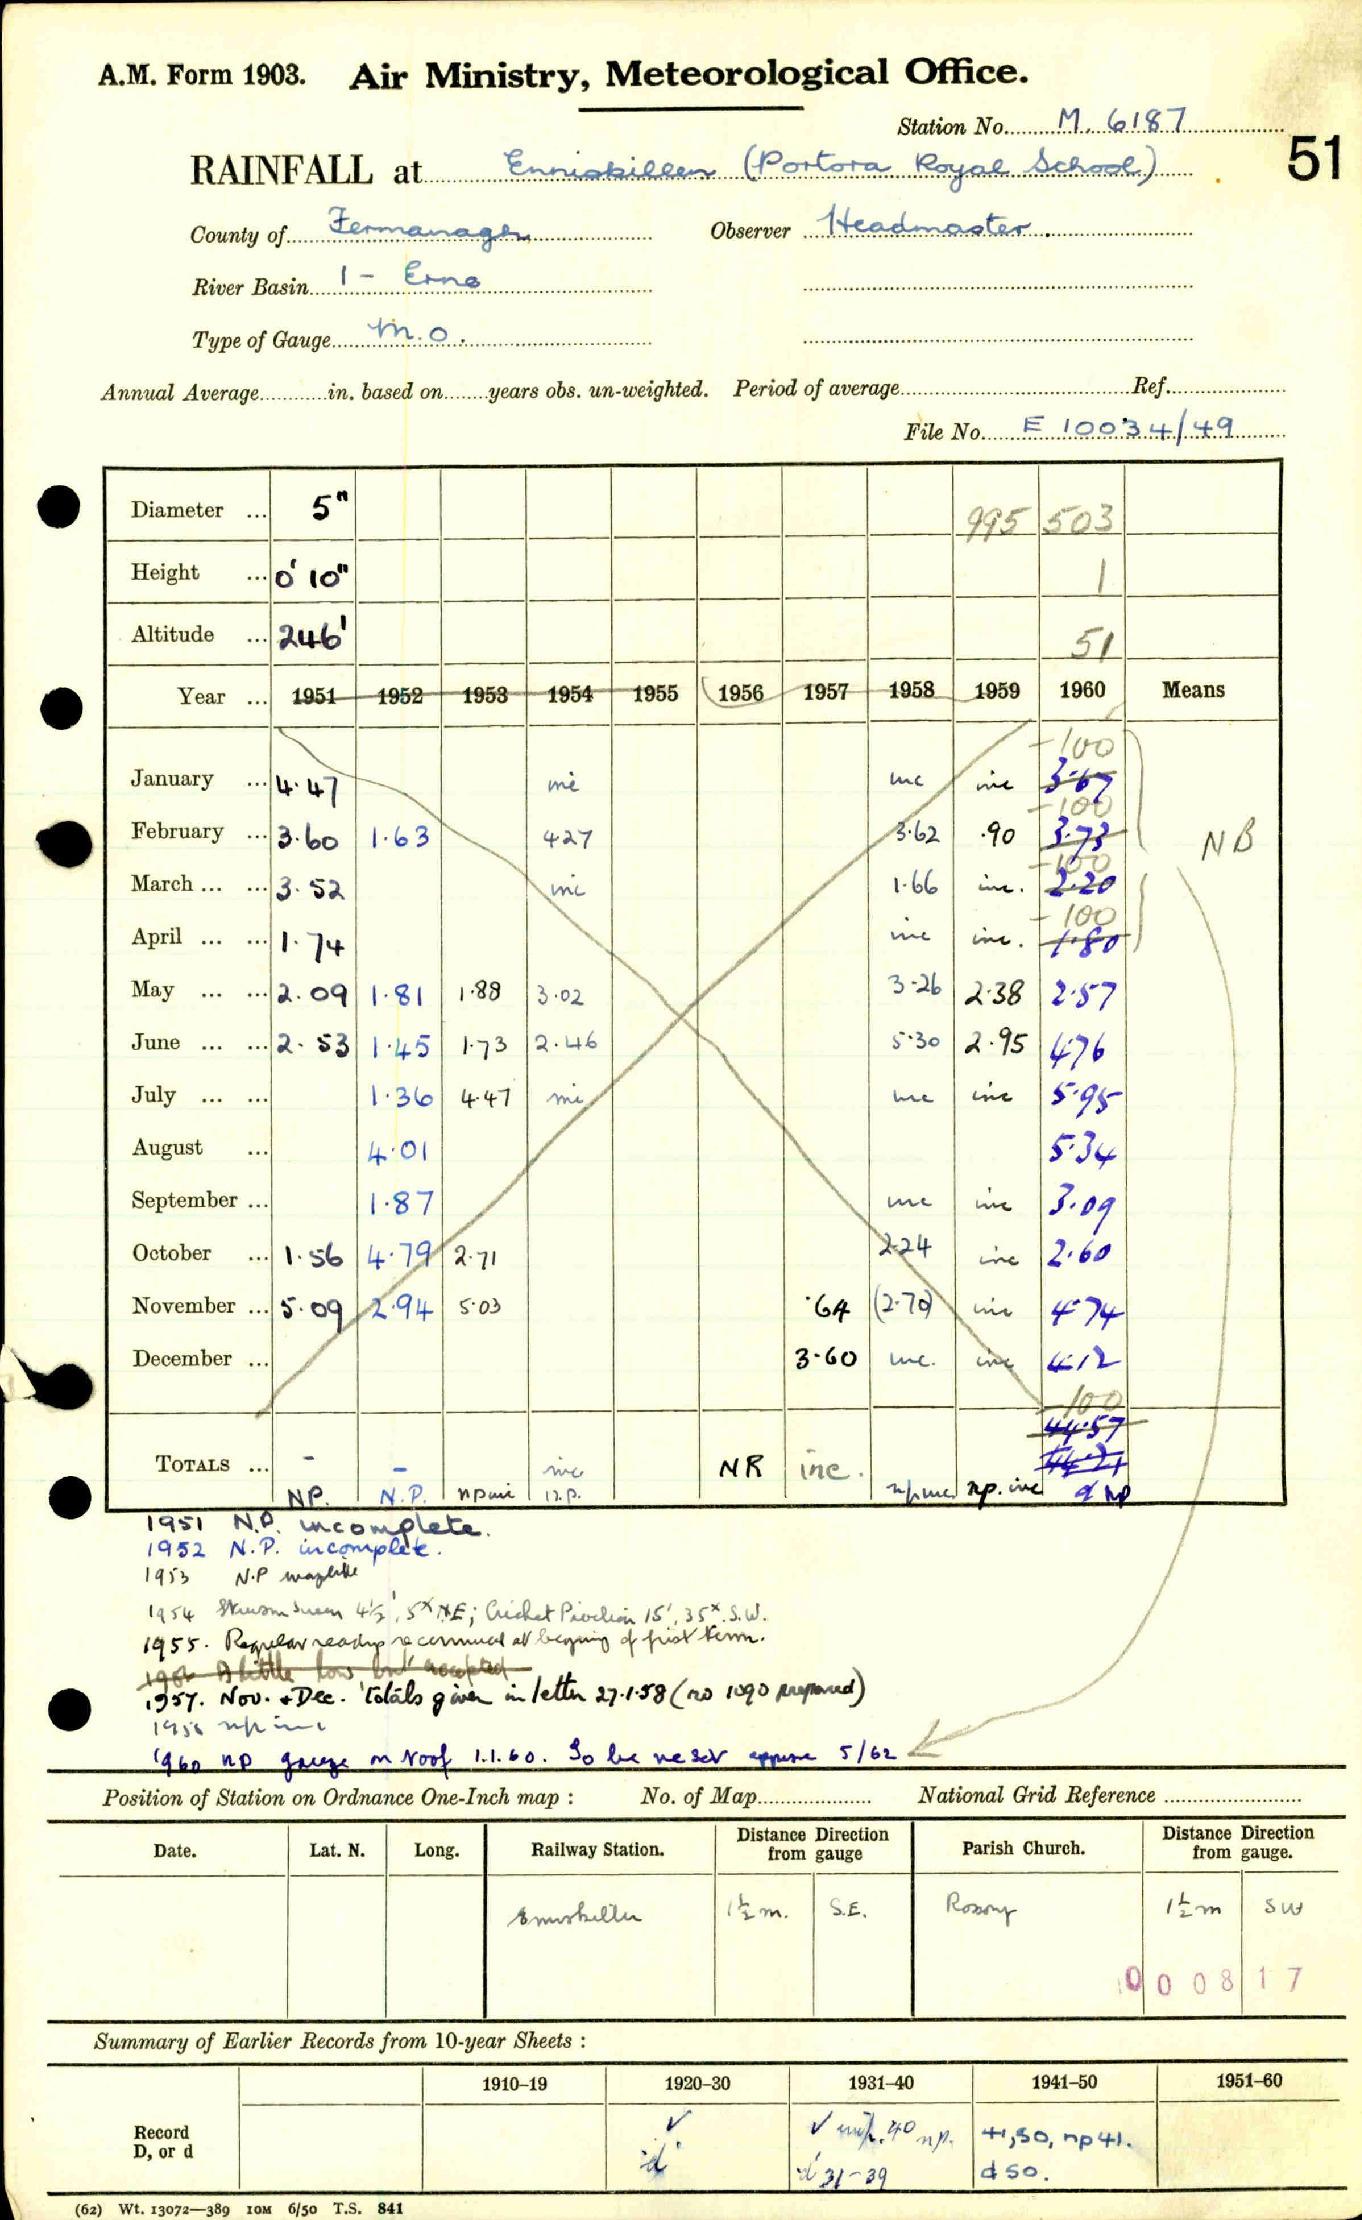 A.M. Form 1903. Air Ministry, Meteorological Office.
Station No. M. 6187
51
RAINFALL at Enniskillen (Portora Royal School)
County of Fermanagh Observer Headmaster.
River Basin 1 - Erne
Type of Gauge M.O.
Annual Average in. based on years obs. un-weighted. Period of average Ref.
File No. E 10034/49
Diameter ... 5" 995 503
Height ... 0' 10" 1
Altitude ... 246' 51
Year ... 1951 1952 1953 1954 1955 1956 1957 1958 1959 1960 Means
-100
January ... 4.47 inc inc inc 3.67
-100
February ... 3.60 1.63 4.27 3.62 .90 3.73 NB
-100
March ... ... 3.52 inc 1.66 inc. 2.20
-100
April ... ... 1.74 inc inc. 1.80
May ... ... 2.09 1.81 1.88 3.02 3.26 2.38 2.57
June ... ... 2.53 1.45 1.73 2.46 5.30 2.95 4.76
July ... ... 1.36 4.47 inc inc inc 5.95
August ... 4.01 5.34
September ... 1.87 inc inc 3.09
October ... 1.56 4.79 2.71 2.24 inc 2.60
November ... 5.09 2.94 5.03 .64 (2.70) inc 4.74
December ... 3.60 inc. inc 4.12
-100
44.57
TOTALS ... - - inc NR inc.
NP. N.P. np inc n.p. np inc np. inc d np
1951 N.P. incomplete.
1952 N.P. incomplete.
1953 N.P
1954 4½', 5x NE; Cricket Pavilion 15', 35x S.W.
1955. Regular readings recommenced at beginning of first term.
A little low but accepted
1957. Nov. + Dec. totals given in letter 27.1.58 (no 1090 prepared)
1958 np inc
1960 np gauge on roof 1.1.60. To be 5/62
Position of Station on Ordnance One-Inch map : No. of Map National Grid Reference
Date. Lat. N. Long. Railway Station. Distance from Direction gauge Parish Church. Distance from Direction gauge.
Enniskillen 1½ m. S.E. Rossory 1½ m SW
000817
Summary of Earlier Records from 10-year Sheets :
1910–19 1920–30 1931–40 1941–50 1951–60
Record D, or d ✓ ✓ 40 np. 41,50, np 41.
'd' 'd' 31-39 d 50.
(62) Wt. 13072—389 10M 6/50 T.S. 841